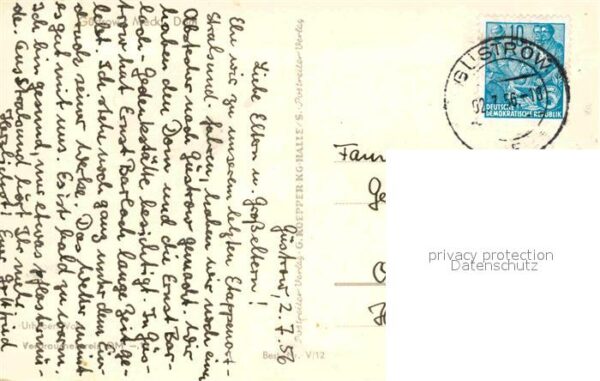 Güstrow, 2.7.56
Liebe Eltern u. Großeltern!
Ehe wir zu unserem letzten Etappenort -
Stralsund - fahren, haben wir noch ein
nach Güstrow gemacht. Wir
haben den Dom und die Ernst Bar-
lach-Gedenkstätte besichtigt. In Güs-
trow hat Ernst Barlach lange Zeit ge-
lebt. Ich stehe noch ganz unter dem Ein-
druck seiner Werke. Das Wetter meint
es gut mit uns. Es ist bald zu warm.
Ich bin gesund, nur etwas pflastermü-
de. Aus Stralsund hört Ihr mehr.
Herzlichst! Euer Gottfried
Güstrow Meckl. Dom
Postreiter-Verlag G. KOEPPER KG HALLE/S. Postreiter-Verlag
10
DEUTSCHE
DEMOKRATISCHE REPUBLIK
GÜSTROW
Fam
privacy protection
Datenschutz
Verbraucherpreis DM
V/12